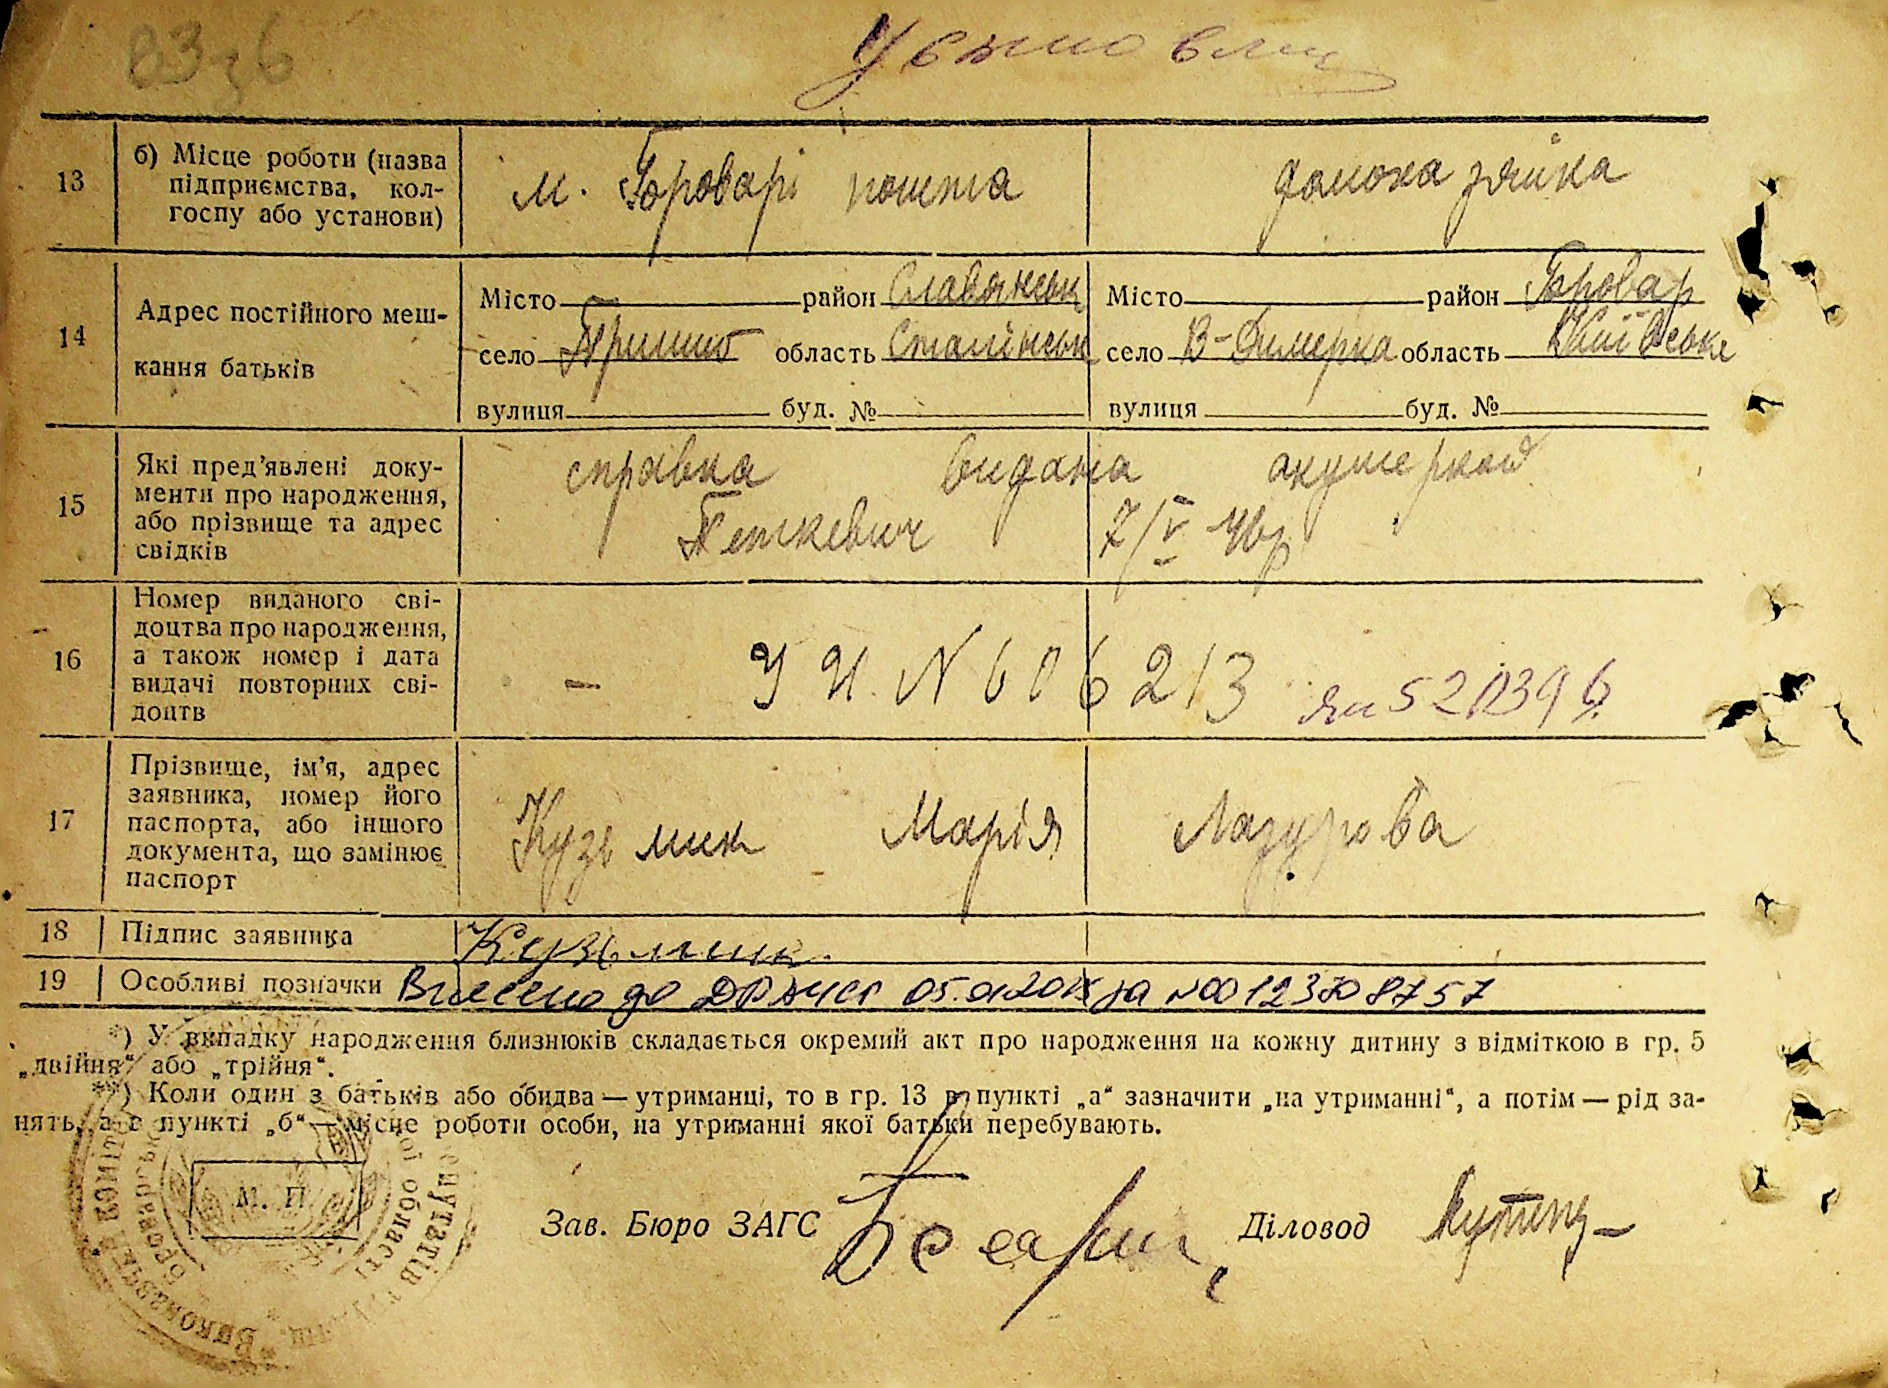 13
б) Місце роботи (назва
підприємства, кол-
госпу або установи)
м. Броварі пошта
домохазяйка
14
Адрес постійного меш-
кання батьків
Місто район Славянськ
село область Сталінськ
вулиця буд. №
Місто район Бровар
село В-Димерка область Київське
вулиця буд. №
15
Які пред’явлені доку-
менти про народження,
або прізвище та адрес
свідків
справка видана акушеркой
Петкевич 7/V 46р
16
Номер виданого сві-
доцтва про народження,
а також номер і дата
видачі повторних сві-
доцтв
– УИ. N 606213
17
Прізвище, ім’я, адрес
заявника, номер його
паспорта, або іншого
документа, що замінює
паспорт
Кузьмик Марія Лазурова
18
Підпис заявника
Кузьмик
19
Особливі позначки
Внесено до ДРАЦСГ за №00123708757
*) У випадку народження близнюків складається окремий акт про народження на кожну дитину з відміткою в гр. 5
„двійня“ або „трійня“.
**) Коли один з батьків або обидва — утриманці, то в гр. 13 в пункті „а“ зазначити „на утриманні“, а потім — рід за-
нять, а в пункті „б“ — місце роботи особи, на утриманні якої батьки перебувають.
М. П.
Зав. Бюро ЗАГС
Діловод